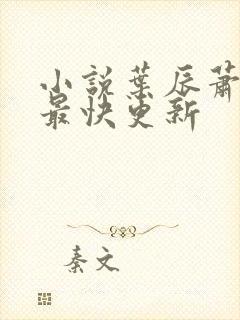 小説葉辰蕭
最快更新
秦文